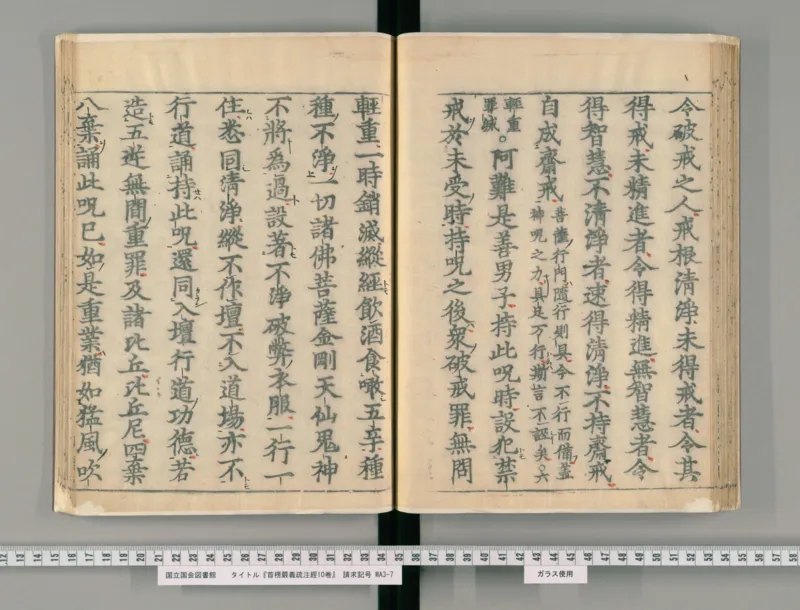 令破戒之人戒根清淨未得戒者令其
得戒未精進者令得精進無智慧者令
得智慧不清淨者速得清淨不持齋戒
自成齋戒
菩薩行門隨行則具令不行而備蓋
神呪之力具足万行斯言不誣矣○六
輕重
罪滅
○阿難是善男子持此呪時設犯禁
戒於未受時持呪之後衆破戒罪無問
輕重一時銷滅縱經飲酒食噉五辛種
種不淨一切諸佛菩薩金剛天仙鬼神
不將為過設著不淨破弊衣服一行一
住悉同清淨縱不作壇不入道場亦不
行道誦持此呪還同入壇行道功德若
造五逆無間重罪及諸比丘比丘尼四棄
八棄誦此呪已如是重業猶如猛風吹
国立国会図書館 タイトル『首楞嚴義疏注經10巻』 請求記号 WA3-7
ガラス使用